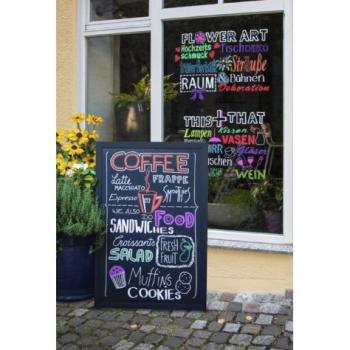 FLOWER ART
Hochzeits
schmuck
Tischdeko
Sträuße
RAUM
& Bühnen
Dekoration
THIS + THAT
Lampen
Kissen
VASEN
Gläser
WEIN
COFFEE
Latte
MACCHIATO
FRAPPÉ
Espresso
Smoothies
WE ALSO DO
FOOD
SANDWICHES
Croissants
SALAD
FRESH
FRUIT
Muffins
COOKIES